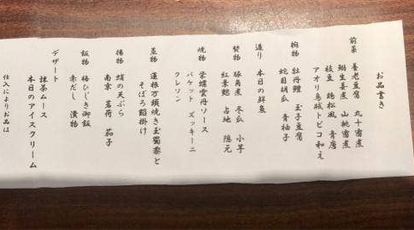 お品書き
前菜 養老豆腐 丸十蜜煮
鰯生姜煮 山桃蜜煮
枝豆 鶏松風 青唐
アオリ烏賊トビコ和え
椀物 牡丹鱧 玉子豆腐
蛇目胡瓜 青柚子
造り 本日の鮮魚
焚物 豚角煮 冬瓜 小芋
紅蒸鮑 占地 隠元
焼物 栄螺雲丹ソース
バケット ズッキーニ
クレソン
蒸物 蓮根万頭焼き玉蜀黍と
そぼろ餡掛け
揚物 蛸の天ぷら
南京 茗荷 茄子
飯物 梅ひじき御飯
赤だし 漬物
デザート
抹茶ムース
本日のアイスクリーム
仕入によりお品は